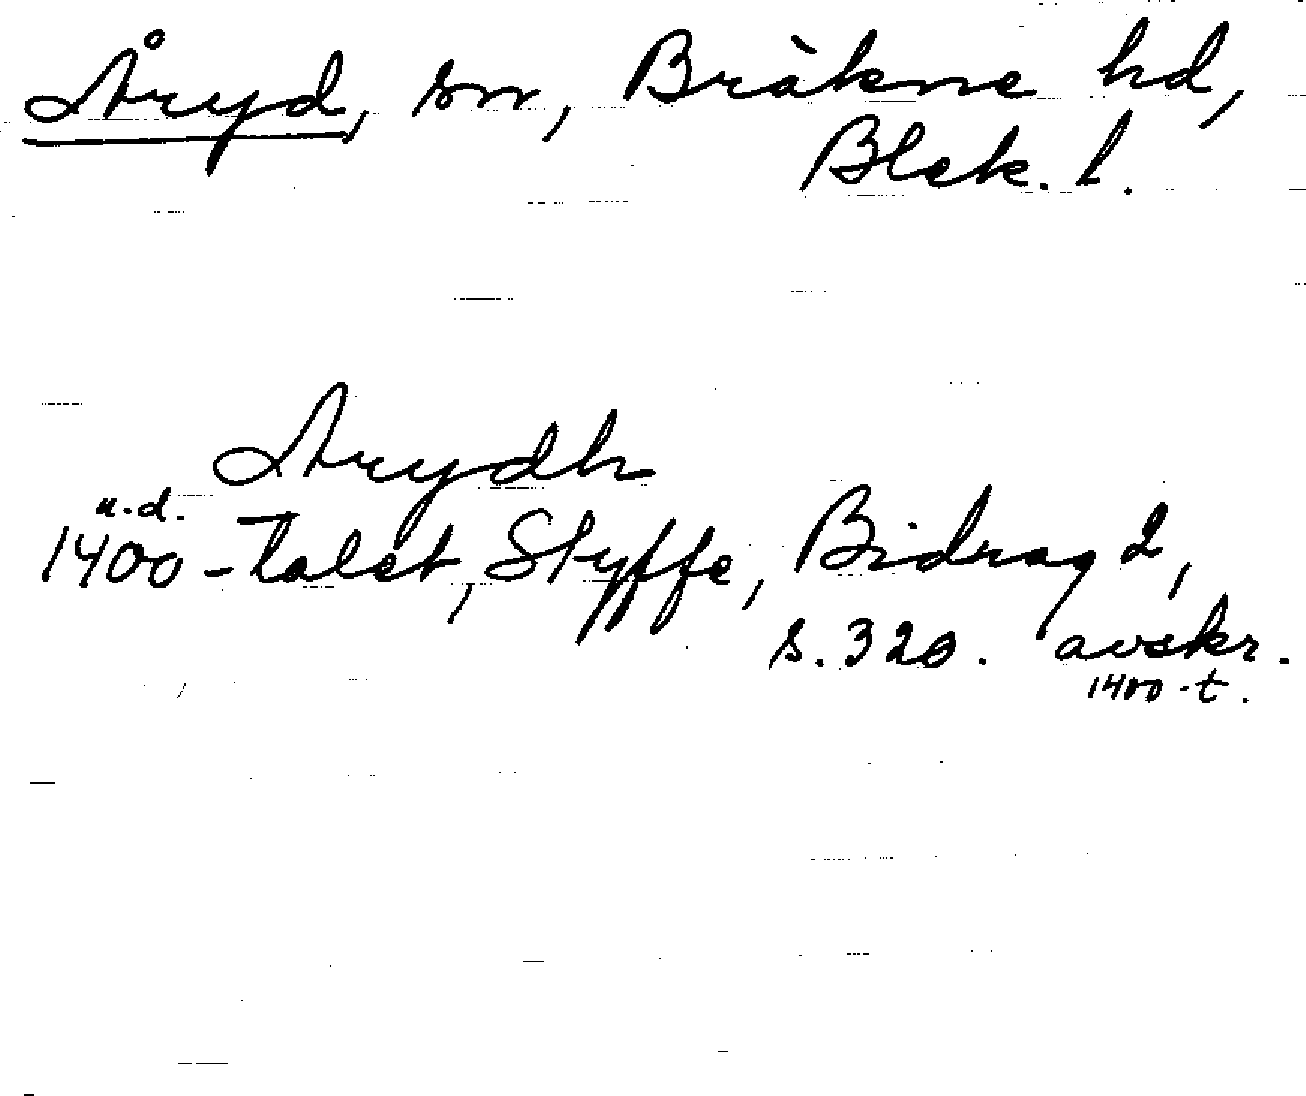 Åryd, sn, Bräkne hd,
Blek. l.
Arydh
u.d.
1400-talet, Styffe, Bidrag 2,
s. 320. avskr.
1400-t.